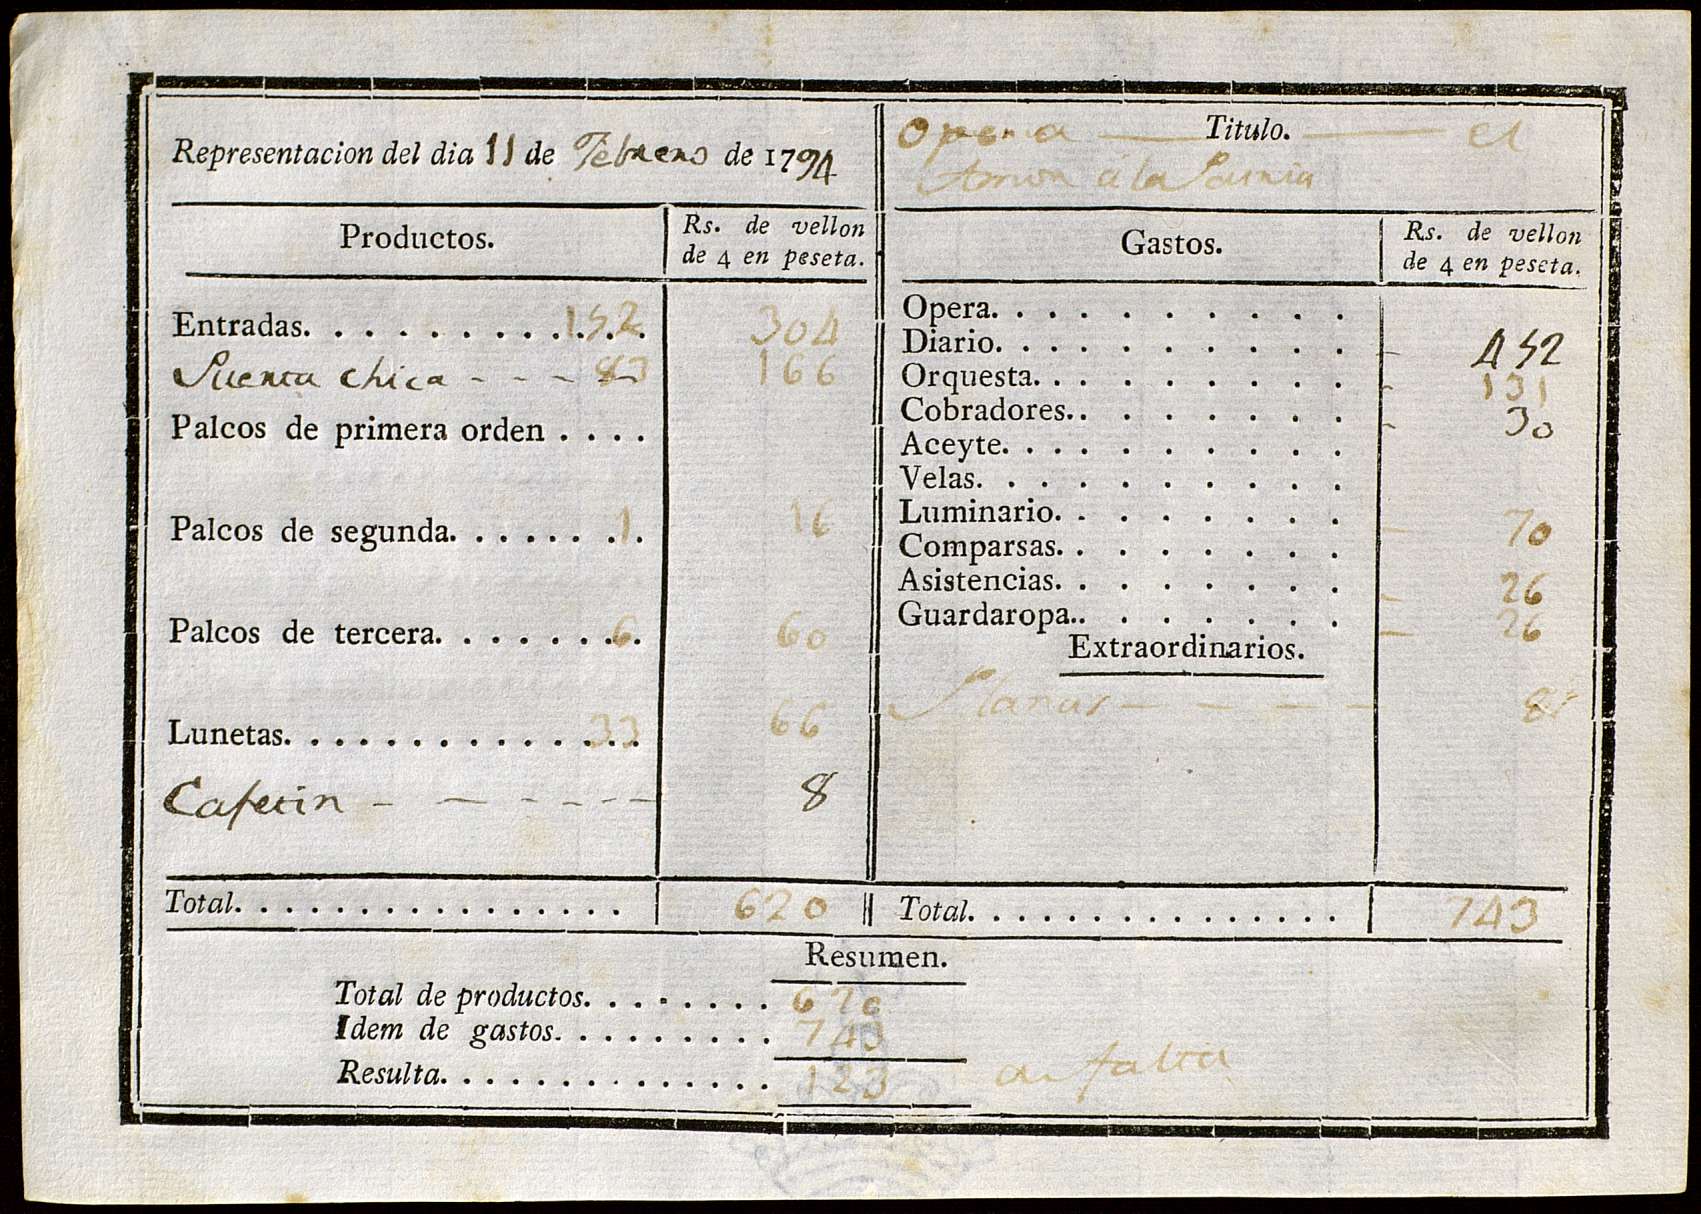 Representacion del dia 11 de Febrero de 1794
Opera Titulo. el
Amor á la Patria
Productos.
Rs. de vellon
de 4 en peseta.
Gastos.
Rs. de vellon
de 4 en peseta.
Entradas. . . . . . . . . . 152 304
Puerta chica - - - 83 166
Palcos de primera orden . . . .
Palcos de segunda. . . . . . . 1 16
Palcos de tercera. . . . . . . 6 60
Lunetas. . . . . . . . . . . . . 33 66
Cafetin - - - - - - 8
Opera. . . . . . . . . .
Diario. . . . . . . . . . 452
Orquesta. . . . . . . . . 131
Cobradores.. . . . . . . 30
Aceyte. . . . . . . . . .
Velas. . . . . . . . . .
Luminario. . . . . . . . 70
Comparsas. . . . . . . .
Asistencias. . . . . . . . 26
Guardaropa.. . . . . . . 26
Extraordinarios.
8
Total. . . . . . . . . . . . . . . . 620
Total. . . . . . . . . . . . . . . 743
Resumen.
Total de productos. . . . . . . . 620
Idem de gastos. . . . . . . . . 743
Resulta. . . . . . . . . . . . . . 123 falta